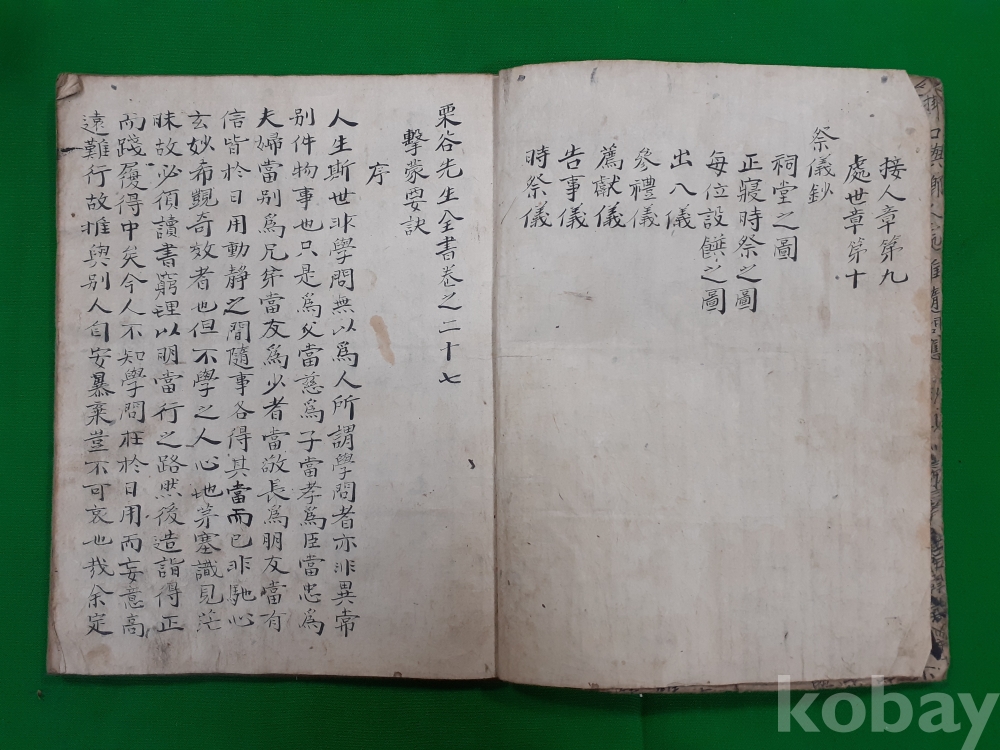 接人章第九
處世章第十
祭儀鈔
祠堂之圖
正寢時祭之圖
每位設饌之圖
出入儀
參禮儀
薦獻儀
告事儀
時祭儀
栗谷先生全書卷之二十七
擊蒙要訣
序
人生斯世非學問無以爲人所謂學問者亦非異常
別件物事也只是爲父當慈爲子當孝爲臣當忠爲
夫婦當別爲兄弟當友爲少者當敬長爲朋友當有
信皆於日用動静之間隨事各得其當而已非馳心
玄妙希覬奇效者也但不學之人心地茅塞識見茫
昧故必須讀書窮理以明當行之路然後造詣得正
而踐履得中矣今人不知學問在於日用而妄意高
遠難行故推與別人自安暴棄豈不可哀也哉余定
kobay